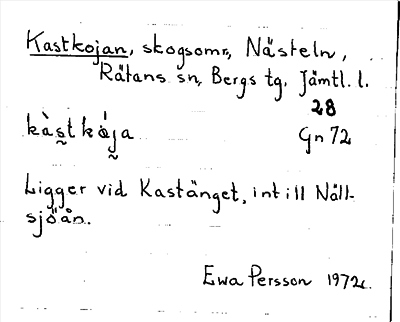 Kastkojan, skogsomr., Nästeln,
Rätans sn, Bergs tg. Jämtl. l.
28
kàs̰tkά̀ja̰ Gn 72
Ligger vid Kastänget, intill Nåll-
sjöån.
Ewa Persson 1972.